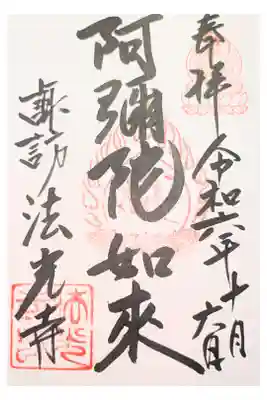 奉拜
令和六年十月六日
阿彌陀如來
諏訪法光寺